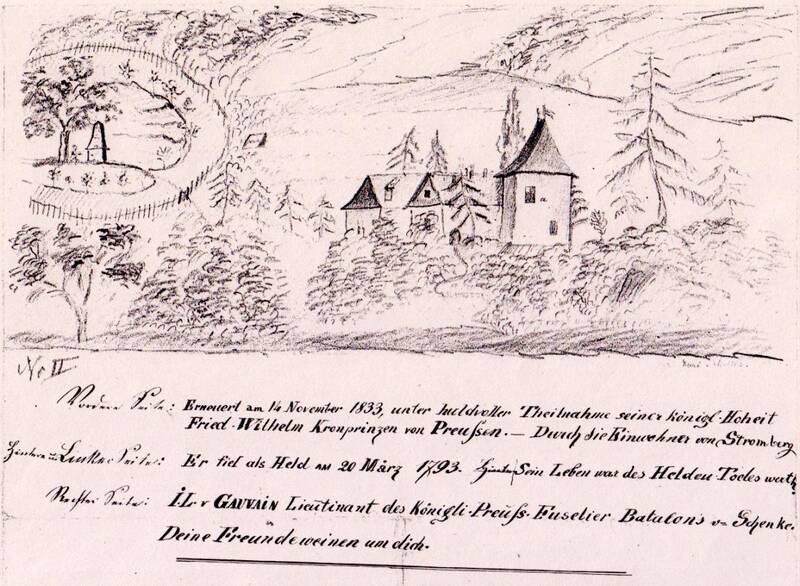 No II
Vordere Seite: Erneuert am 14 November 1833, unter huldvoller Theilnahme seiner königl. Hoheit
Fried. Wilhelm Kronprinzen von Preussen. — Durch die Einwohner von Stromberg
Hintere Linke Seite: Er fiel als Held am 20 März 1793. Sein Leben war des Helden Todes werth
Rechte Seite: I. L. v GAUVAIN Lieutinant des Königli. Preuss. Fuselier Batalons v. Schenke.
Deine Freunde weinen um dich.